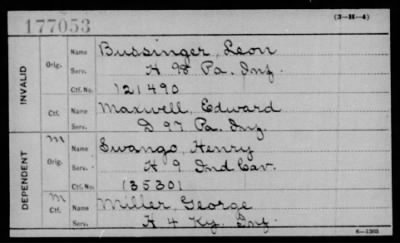 177053
(3-H-4)
INVALID
Orig. Name Bussinger, Leon
Serv. H 98 Pa. Inf.
Ctf. No. 121490
Ctf. Name Maxwell, Edward
Serv. D 97 Pa. Inf.
DEPENDENT
M Orig. Name Swango, Henry
Serv. H 9 Ind Cav.
Ctf. No. 135301
M Ctf. Name Miller, George
Serv. H 4 Ky. Inf.